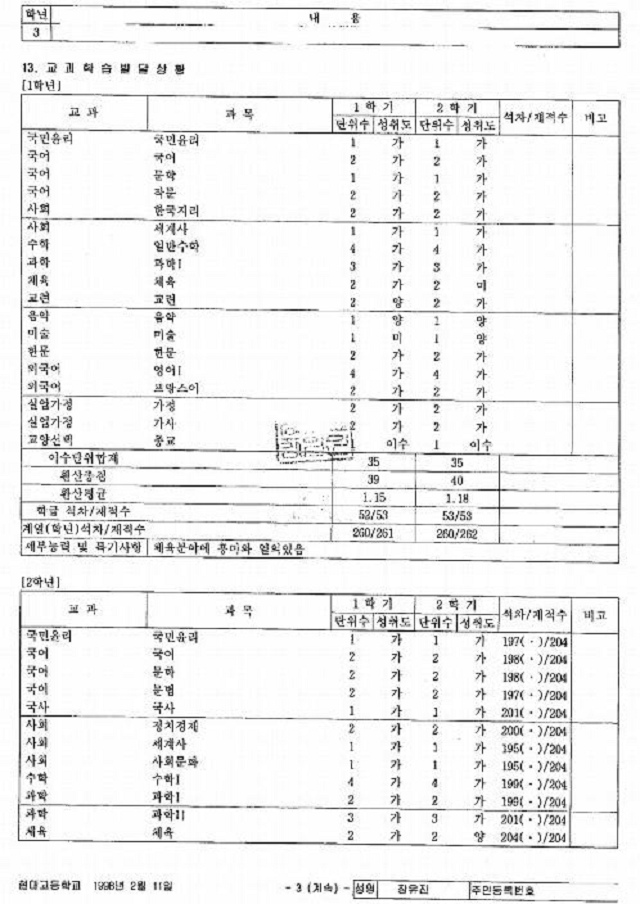 학년 내 용
3
13. 교 과 학 습 발 달 상 황
[1학년]
교 과 과 목 1 학 기 2 학 기 석차/재적수 비고
단위수 성취도 단위수 성취도
국민윤리 국민윤리 1 가 1 가
국어 국어 2 가 2 가
국어 문학 1 가 1 가
국어 작문 2 가 2 가
사회 한국지리 2 가 2 가
사회 세계사 1 가 1 가
수학 일반수학 4 가 4 가
과학 과학I 3 가 3 가
체육 체육 2 가 2 미
교련 교련 2 양 2 가
음악 음악 1 양 1 양
미술 미술 1 미 1 양
한문 한문 2 가 2 가
외국어 영어I 4 가 4 가
외국어 프랑스어 2 가 2 가
실업가정 가정 2 가 2 가
실업가정 가사 2 가 2 가
교양선택 종교 1 이수 1 이수
이수단위합계 35 35
환산총점 39 40
환산평균 1.15 1.18
학급 석차/재적수 53/53
계열(학년)석차/재적수 260/261 260/262
세부능력 및 특기사항 체육분야에 흥미와 열의있음
[2학년]
교 과 과 목 1 학 기 2 학 기 석차/재적수 비고
단위수 성취도 단위수 성취도
국민윤리 국민윤리 1 가 1 가 197( · )/204
국어 국어 2 가 2 가 198( · )/204
국어 문학 2 가 2 가 198( · )/204
국어 문법 2 가 2 가 197( · )/204
국사 국사 1 가 1 가 201( · )/204
사회 정치경제 2 가 2 가 200( · )/204
사회 세계사 1 가 1 가 195( · )/204
사회 사회문화 1 가 1 가 195( · )/204
수학 수학I 4 가 4 가 199( · )/204
과학 과학I 2 가 2 가 199( · )/204
과학 과학II 3 가 3 가 201( · )/204
체육 체육 2 가 2 양 204( · )/204
현대고등학교 1998년 2월 11일 - 3 (계속) - 성명 장유진 주민등록번호